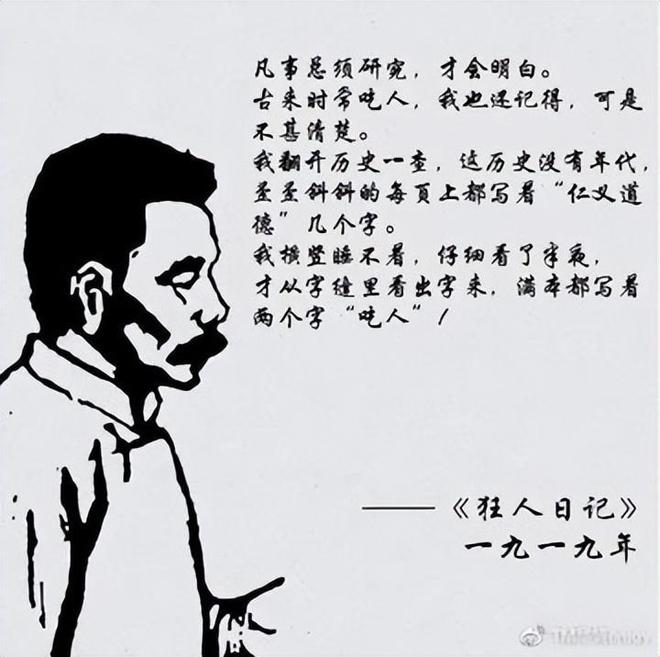 凡事总须研究，才会明白。
古来时常吃人，我也还记得，可是
不甚清楚。
我翻开历史一查，这历史没有年代，
歪歪斜斜的每頁上都写着“仁义道
德”几个字。
我横竖睡不着，仔细看了半夜，
才从字缝里看出字来，满本都写着
两个字“吃人”！
——《狂人日记》
一九一九年